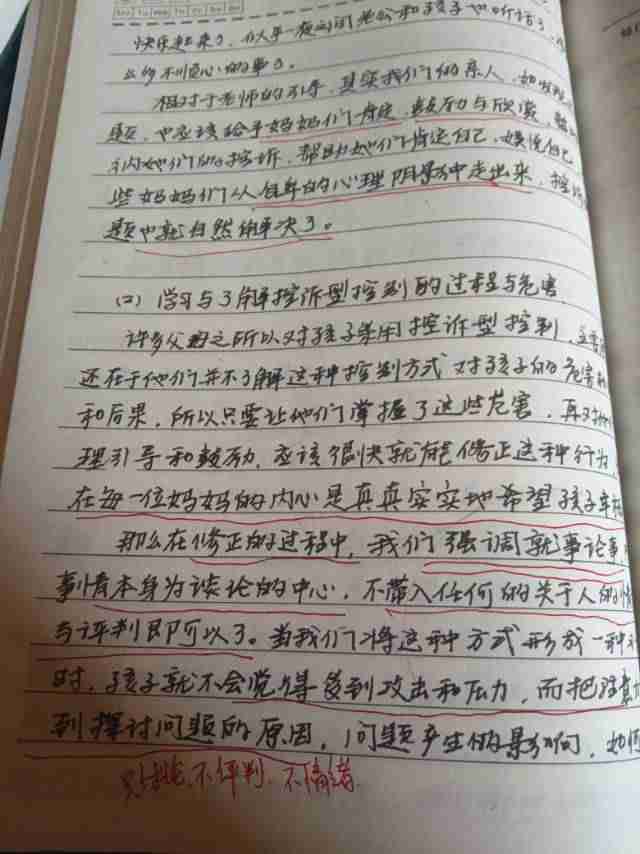 快乐起来了，似乎一夜之间老公和孩子也听话了，
么多不顺心的事了。
相对于老师的引导，其实我们的亲人，如
题，也应该给予妈妈们肯定、鼓励与欣赏，
内她们的控诉，帮助她们肯定自己，愉悦自己
些妈妈们从自身的心理阴影中走出来，控诉
题也就自然解决了。
(2) 学习与了解控诉型控制的过程与危害
许多父母之所以对孩子采用控诉型控制，主要
还在于他们并不了解这种控制方式对孩子的危害
和后果，所以只要让他们掌握了这些危害，再
理引导和鼓励，应该很快就能修正这种行为
在每一位妈妈的内心是真真实实地希望孩子幸福
那么在修正的过程中，我们强调就事论事
事情本身为谈论的中心，不带入任何的关于人的情
与评判即可以了。当我们将这种方式形成一种
时，孩子就不会觉得受到攻击和压力，而把注意力
到探讨问题的原因，问题产生的影响，如何
不评判，不情绪